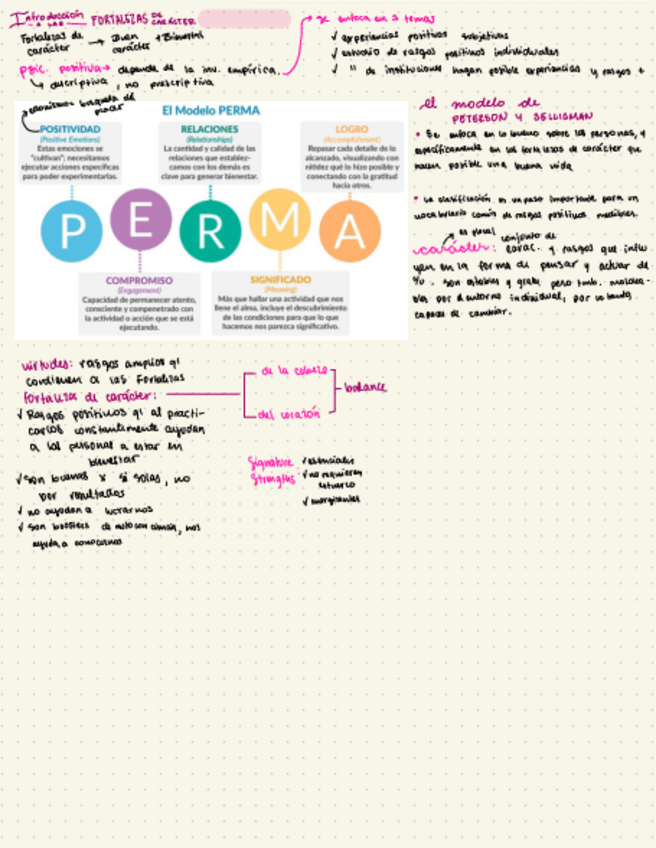 Introducción a las FORTALEZAS DE CARÁCTER
Fortalezas de carácter → Buen carácter + Bienestar
psic. positiva → depende de la inv. empírica.
↳ descriptiva, no prescriptiva
se enfoca en 3 temas
✓ experiencias positivas subjetivas
✓ estudio de rasgos positivos individuales
✓ " de instituciones hagan posible experiencias y rasgos +
búsqueda del placer
El Modelo PERMA
POSITIVIDAD
(Positive Emotions)
Estas emociones se
"cultivan"; necesitamos
ejecutar acciones específicas
para poder experimentarlas.
RELACIONES
(Relationships)
La cantidad y calidad de las
relaciones que establez-
camos con los demás es
clave para generar bienestar.
LOGRO
(Accomplishment)
Repasar cada detalle de lo
alcanzado, visualizando con
nitidez qué lo hizo posible y
conectando con la gratitud
hacia otros.
P E R M A
COMPROMISO
(Engagement)
Capacidad de permanecer atento,
consciente y compenetrado con
la actividad o acción que se está
ejecutando.
SIGNIFICADO
(Meaning)
Más que hallar una actividad que nos
llene el alma, incluye el descubrimiento
de las condiciones para que lo que
hacemos nos parezca significativo.
el modelo de
PETERSON Y SELLIGMAN
• Se enfoca en lo bueno sobre las personas, y
específicamente en las fortalezas de carácter que
hacen posible una buena vida
• La clasificación es un paso importante para un
vocabulario común de rasgos positivos medibles.
es plural
carácter: conjunto de carac. y rasgos que influ
yen en la forma de pensar y actuar de
son estables y gral. pero tamb. moldea-
bla por el entorno individual, por lo tanto
capaz de cambiar.
virtudes: rasgos amplios q'
conllevan a las fortalezas
fortaleza de carácter:
✓ Rasgos positivos q' al practi-
carlos constantemente ayudan
a las personas a estar en
bienestar
✓ son buenas x si solas, no
por resultados
✓ no ayudan a lucrarnos
✓ son boosters de
ayuda a conocernos
de la cabeza
del corazón
balance
Signature Strengths:
✓ esenciales
✓ no requieren
esfuerzo
✓ energizantes